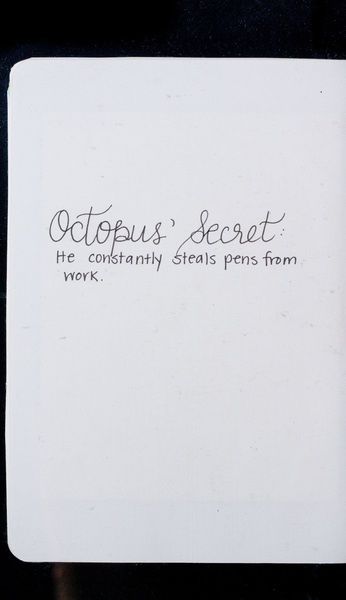 Octopus' Secret:
He constantly steals pens from
work.